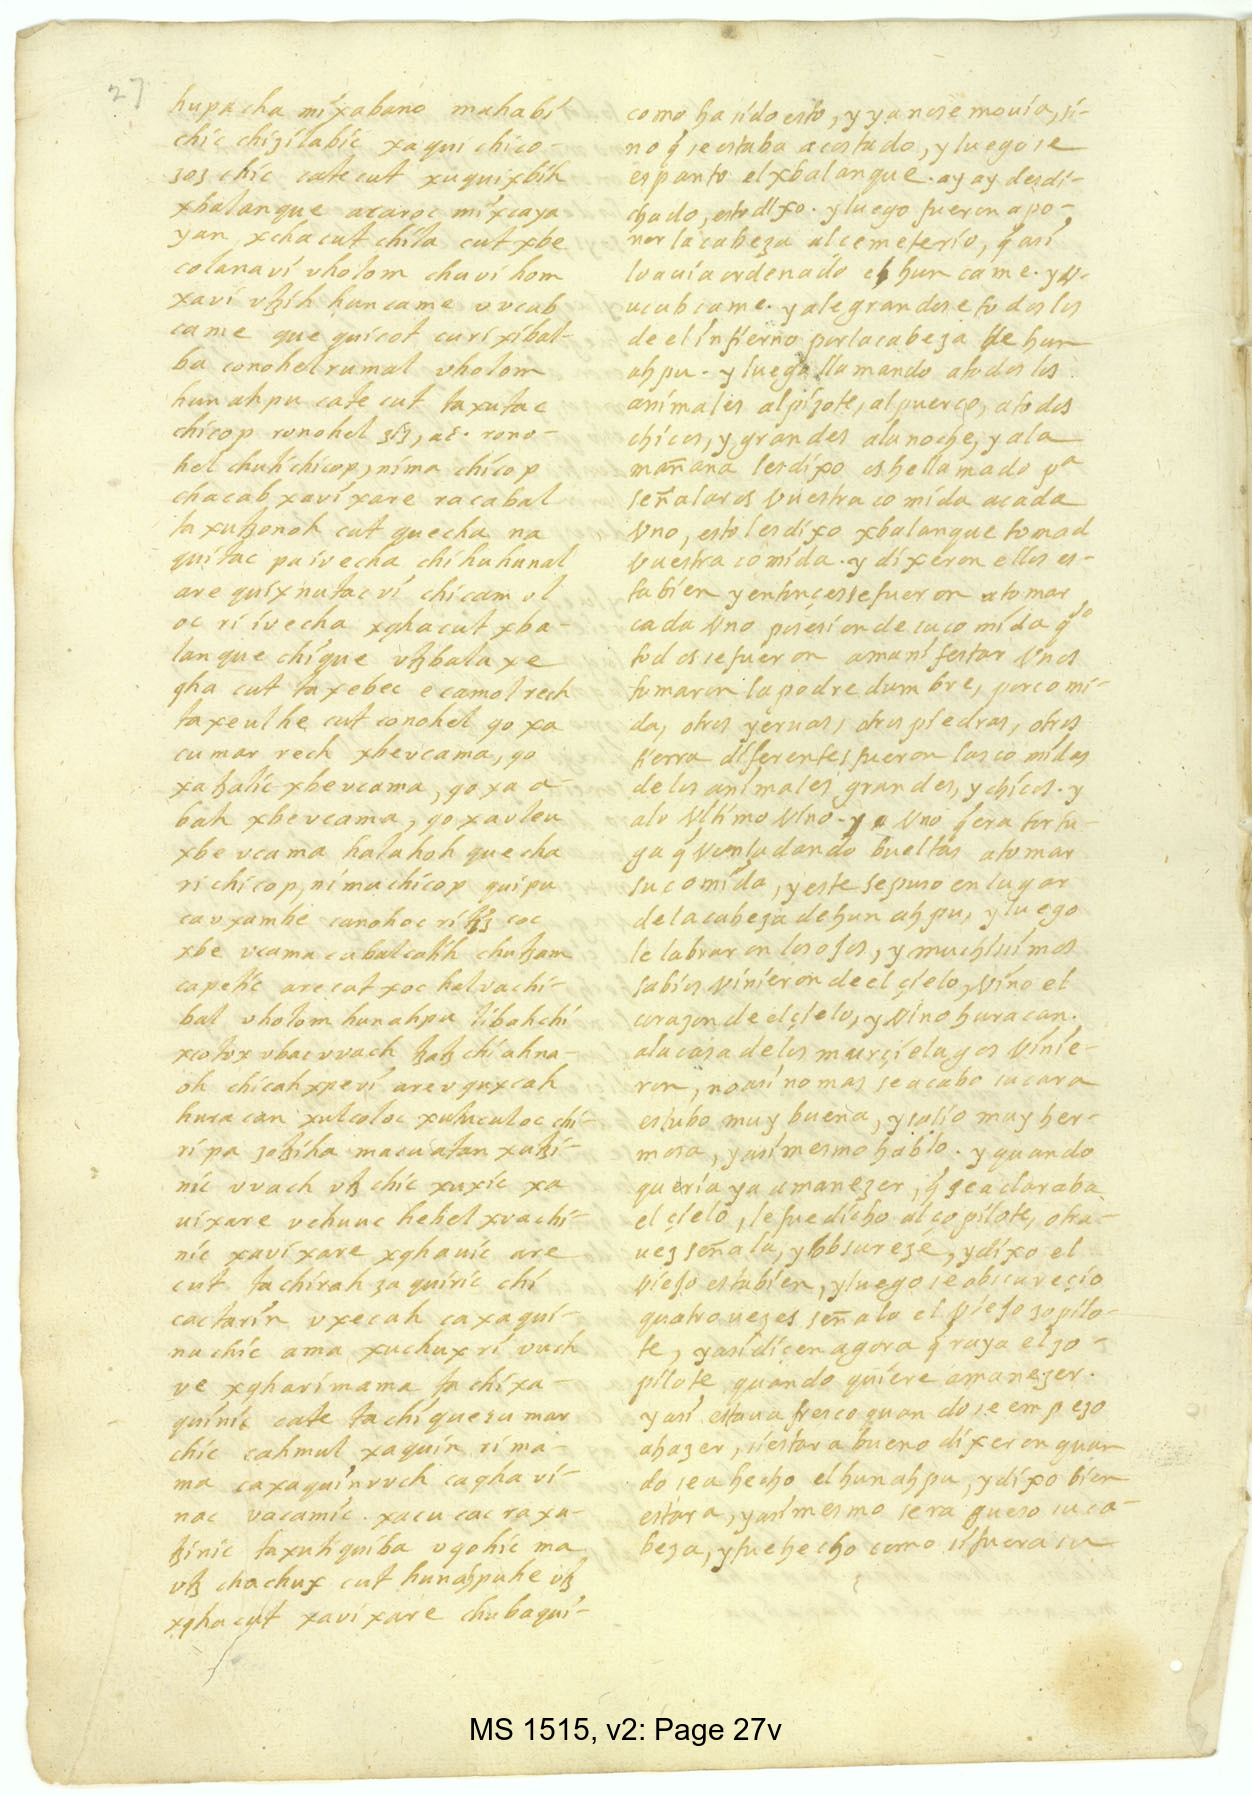 27
hupacha mixabano mahabi
chic chizilabic xaqui chico-
zoz chic catecut xuquixbih
xbalanque acaroc mixcaya
yan xchacut chila cut xbe
colanavi vholom chuvi hom
xavi vtzih huncame vvcub
came que quicot curi xibal-
ba conohel rumal vholom
hunahpu cate cut taxutac
chicop ronohel ziz, ac. rono-
hel chuti chicop, nima chicop
chacab xavi xare racabal
taxutzonoh cut quecha na
qui tac pa ivecha chi huhunal
are quixnutac vi chicam vl
oc ri ivecha xqhacut xba-
lanque chique vtzbala xe
qha cut taxebec ecamol rech
taxeulhe cut conohel qo xa
cumar rech xbevcama, qo
xa tzalic xbevcama, qo xa a-
bah xbevcama, qo xavleu
xbe vcama halahoh quecha
ri chicop, nima chicop quipu
cavxambe canohoc ri coc
xbe vcama cabalcatih chutzam
capetic arecut xoc halvachi-
bal vholom hunahpu libahchi
xcotox vbac vvach tzatz chi ahna-
oh chicah xpe vi are vquxcah
huracan xulcoloc xulucutoc chi-
ri pa zotziha macuatan xutzi-
nic vvach vtz chic xuxic xa
vixare vchuuc hehel xvachi-
nic xavi xare xqhauic are
cut tachirah zaquiric chi
cactarin vxecah caxaqui-
nu chic ama xuchux ri vuch
ve xqhari mama tachixa-
quinic cate tachiquezumar
chic cahmul xaquin ri ma-
ma caxaquin vuch caqha vi-
nac vacamic. xacu cac raxa-
tzinic taxutiquiba vqohic ma
vtz chachux cut hunahpuhe vtz
xqhacut xavi xare chubaqui-
como ha sido esto, y ya no se mouia, si-
no q̃ se estaba acostado, y luego se
espanto el xbalanque. ay ay desdi-
chado, esto dixo. y luego fueron a po-
ner la cabeza al cementerio, q̃ asi
lo auia ordenado el hun came. y v-
ucub came. y alegrandose todos los
de el infierno por la cabeza de hun
ahpu. y luego llamando a todos los
animales al pizote, al puerço, a todos
chicos, y grandes a la noche, y a la
mañana les dixo os he llamado pa
señalaros vuestra comida a cada
vno, esto les dixo xbalanque tomad
vuestra comida. y dixeron ellos es-
ta bien y entonces se fueron a tomar
cada vno posesion de su comida qdo
todos se fueron a manifestar vnos
tomaron la podredumbre, por comi-
da, otros yeruas, otros piedras, otros
tierra diferentes fueron las comidas
de los animales grandes, y chicos. y
a lo vltimo vino. y a vno q̃ era tortu-
ga q̃ venia dando bueltas a tomar
su comida, y este se puso en lugar
de la cabeza de hun ahpu, y luego
le labraron los ojos, y muchissimos
sabios vinieron de el çielo, vino el
corazon de el çielo, y vino huracan.
a la casa de los murçielagos vinie-
ron, no asi no mas se acabo su cara
estubo muy buena, y salio muy her-
mosa, y asi mesmo hablo. y quando
queria ya amanezer, q̃ se aclaraba
el çielo, le fue dicho al çopilote, otra-
uez señala, y obscureze, y dixo el
viejo esta bien, y luego se obscureçio
quatro uezes señalo el viejo zopilo-
te, y asi dicen agora q̃ raya el zo-
pilote quando quiere amanezer.
y asi estaua fresco quando se empezo
a hazer, si estara bueno dixeron quan
do se a hecho el hunahpu, y dixo bien
estara, y asi mesmo sera queso su ca-
beza, y fue hecho como si fuera su
MS 1515, v2: Page 27v